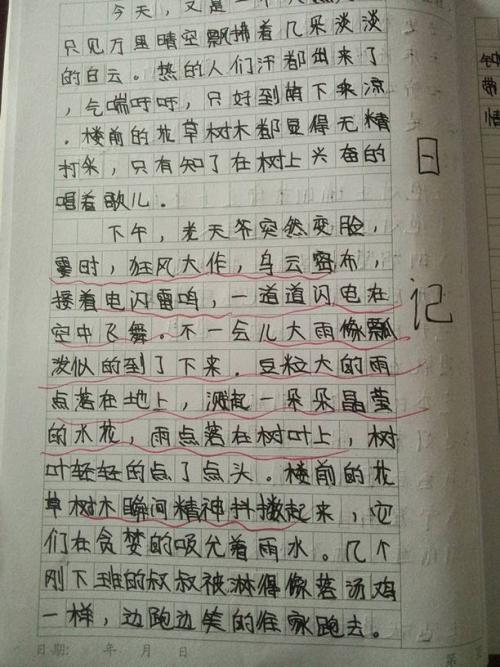 今天，又是一个
只见万里晴空飘拂着几朵淡淡
的白云。热的人们汗都出来了
，气喘呼呼，只好到荫下乘凉
。楼前的花草树木都显得无精
打采，只有知了在树上兴奋的
唱着歌儿。
下午，老天爷突然变脸，
霎时，狂风大作，乌云密布，
接着电闪雷鸣，一道道闪电在
空中飞舞。不一会儿大雨像飘
泼似的到了下来。豆粒大的雨
点落在地上，溅起一朵朵晶莹
的水花，雨点落在树叶上，树
叶轻轻的点了点头。楼前的花
草树木瞬间精神抖擞起来，它
们在贪婪的吸允着雨水。几个
刚下班的叔叔被淋得像落汤鸡
一样，边跑边笑的往家跑去。
日记
日期： 年 月 日